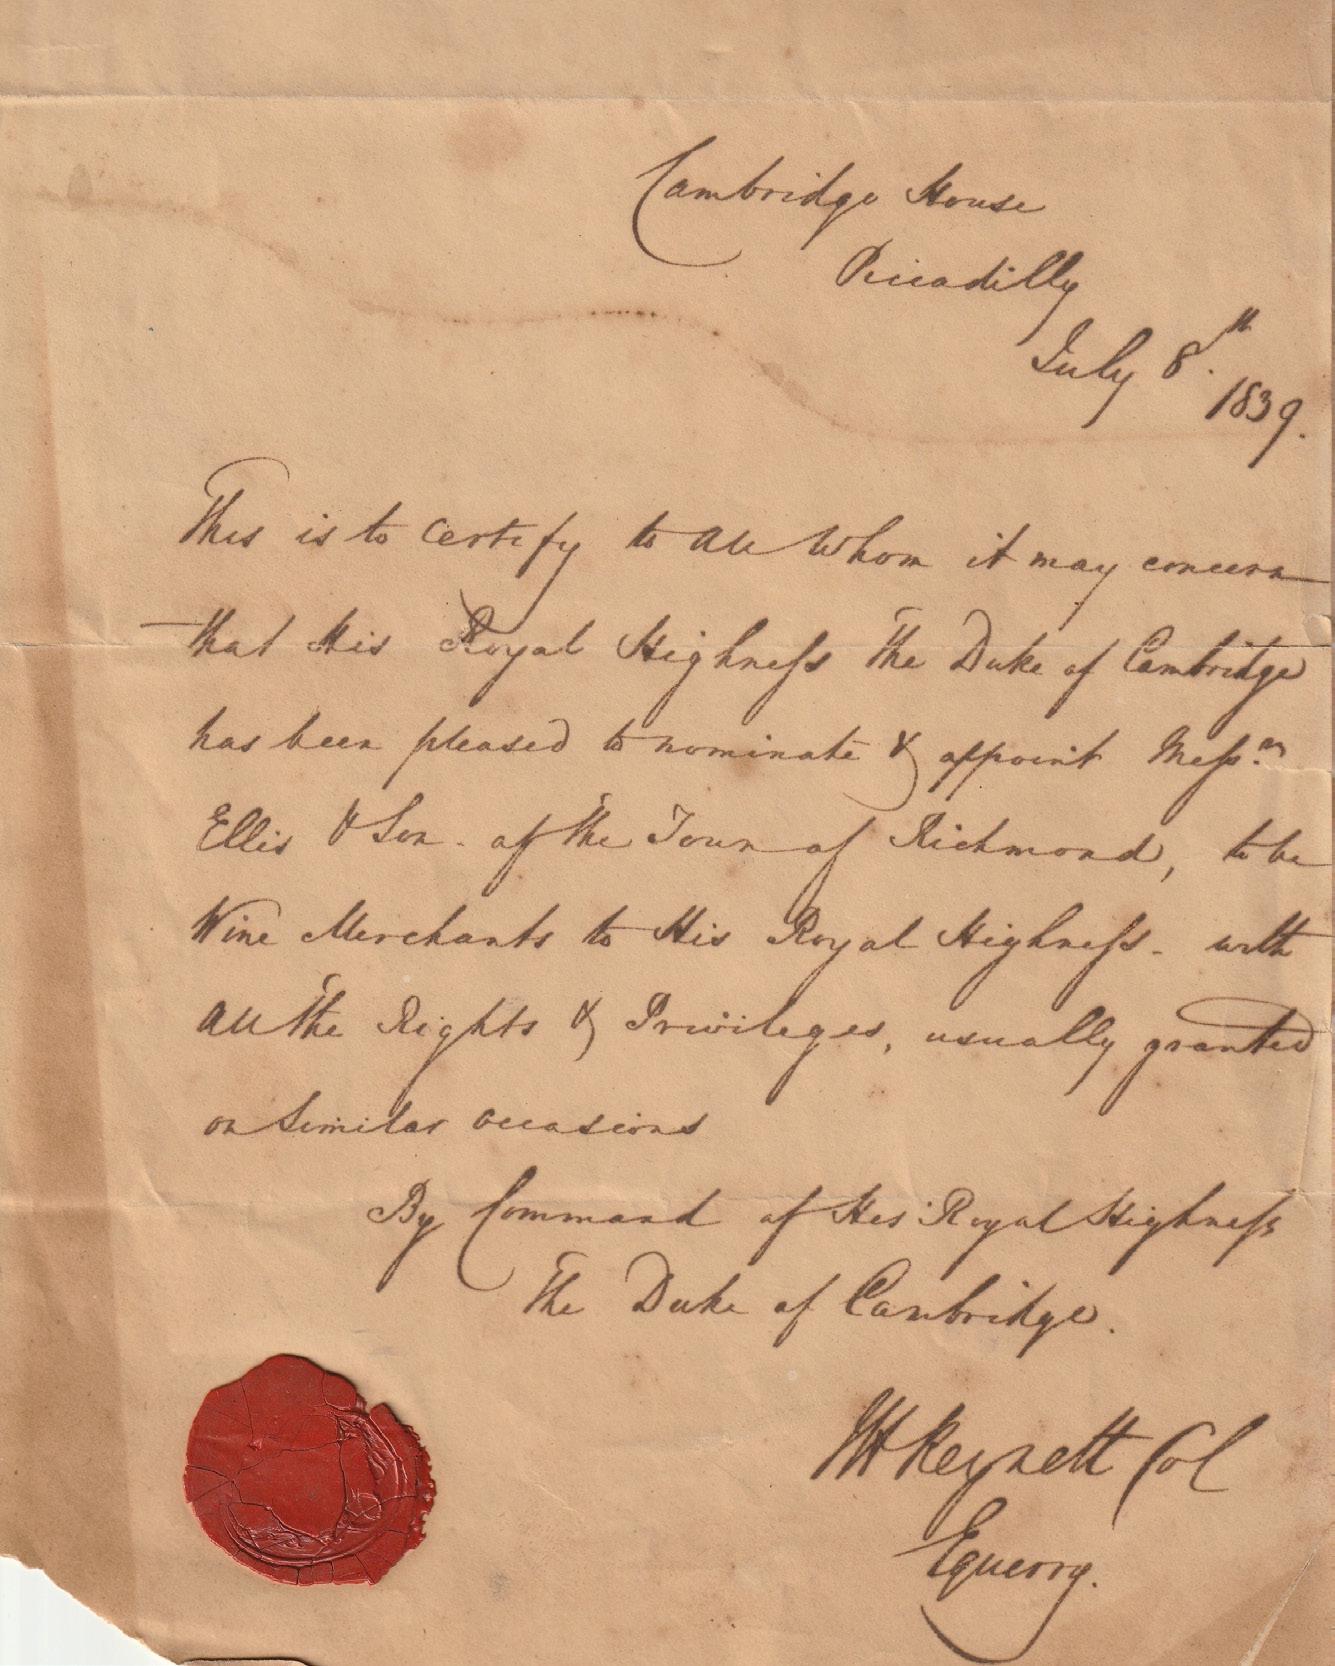 Cambridge House
Piccadilly
July 8th.
1839.
This is to certify to all whom it may concern
that His Royal Highneſs The Duke of Cambridge
has been pleased to nominate & appoint Meſs.rs
Ellis & Son. of the Town of Richmond, to be
Wine Merchants to His Royal Highneſs. with
all the Rights & Privileges, usually granted
on similar occasions
By Command of His Royal Highneſs
The Duke of Cambridge.
JH Reynett Col
Equerry.